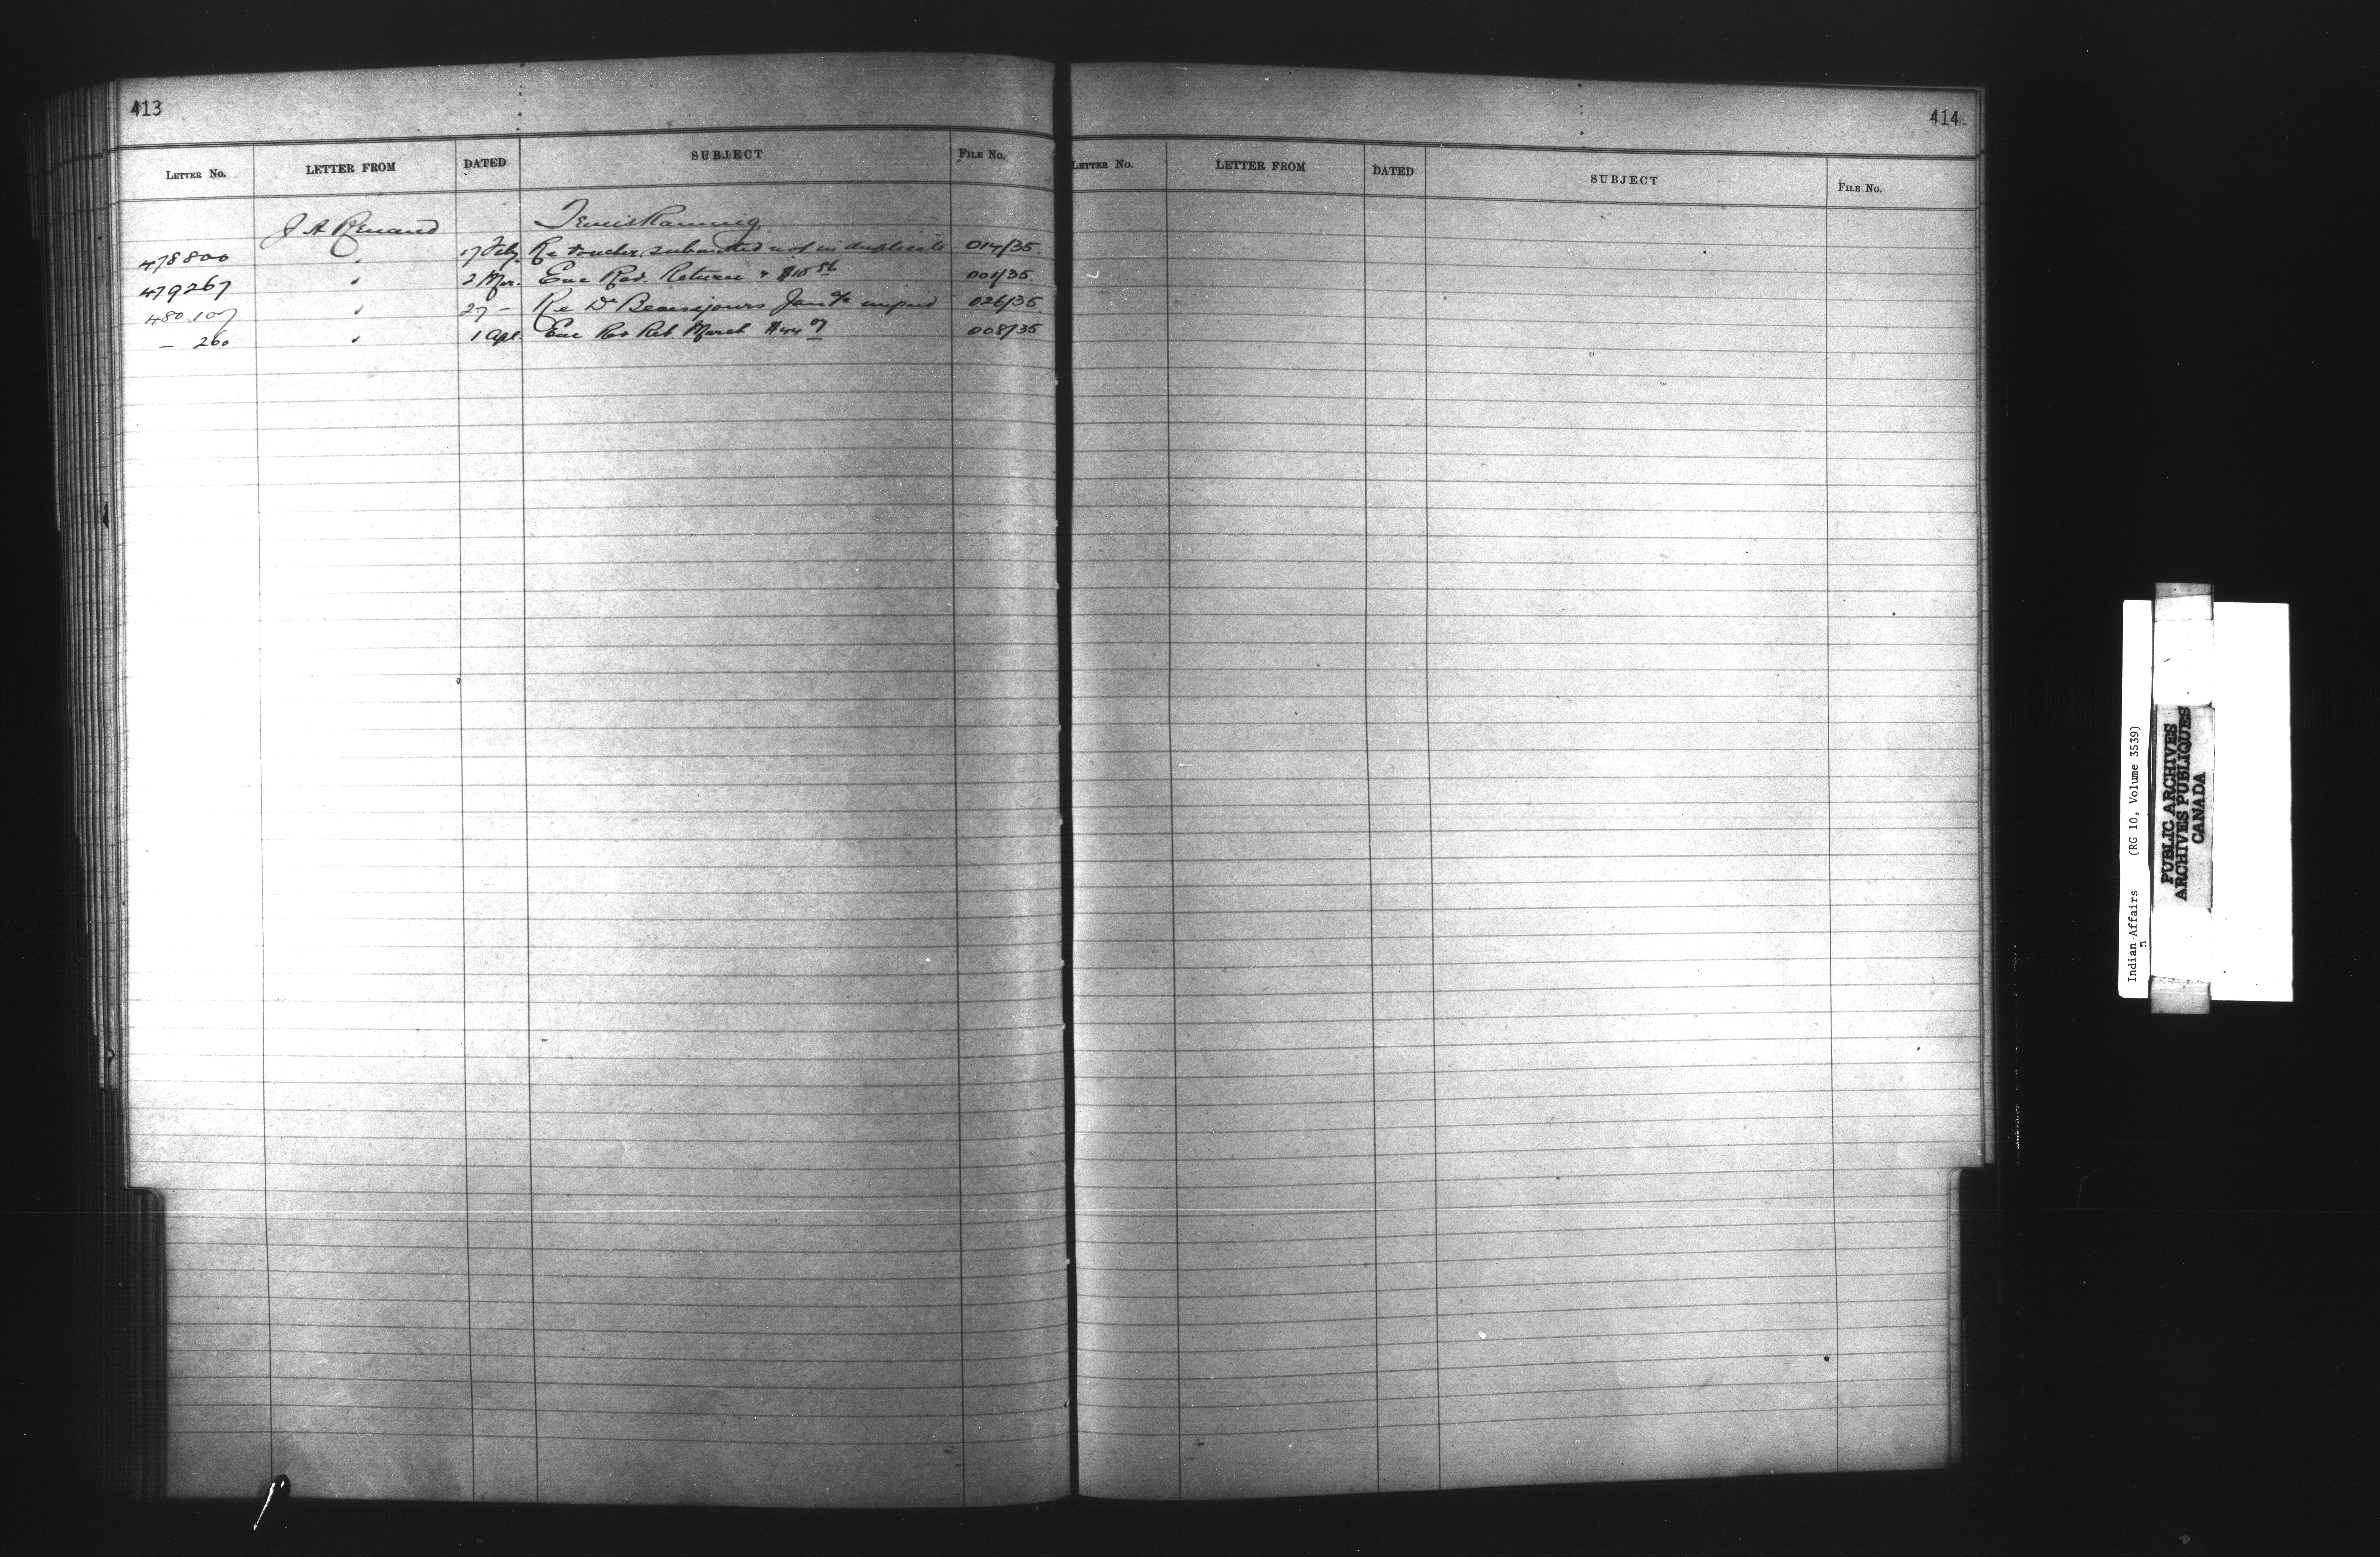 413
LETTER No. LETTER FROM DATED SUBJECT FILE No.
J A Renaud Temiskaming
478800 " 17 Feby. Re voucher submitted not in duplicate 014/35.
479267 " 2 Mar. Enc Rev. Return + $10 56 001/35.
480107 " 27 – Re Dr Beausejours Jan a/c unpaid 026/35.
– 260 " 1 Apl. Enc Rev Ret. March $44 07 008/35
414
LETTER No. LETTER FROM DATED SUBJECT FILE No.
Indian Affairs (RG 10, Volume 3539)
PUBLIC ARCHIVES
ARCHIVES PUBLIQUES
CANADA